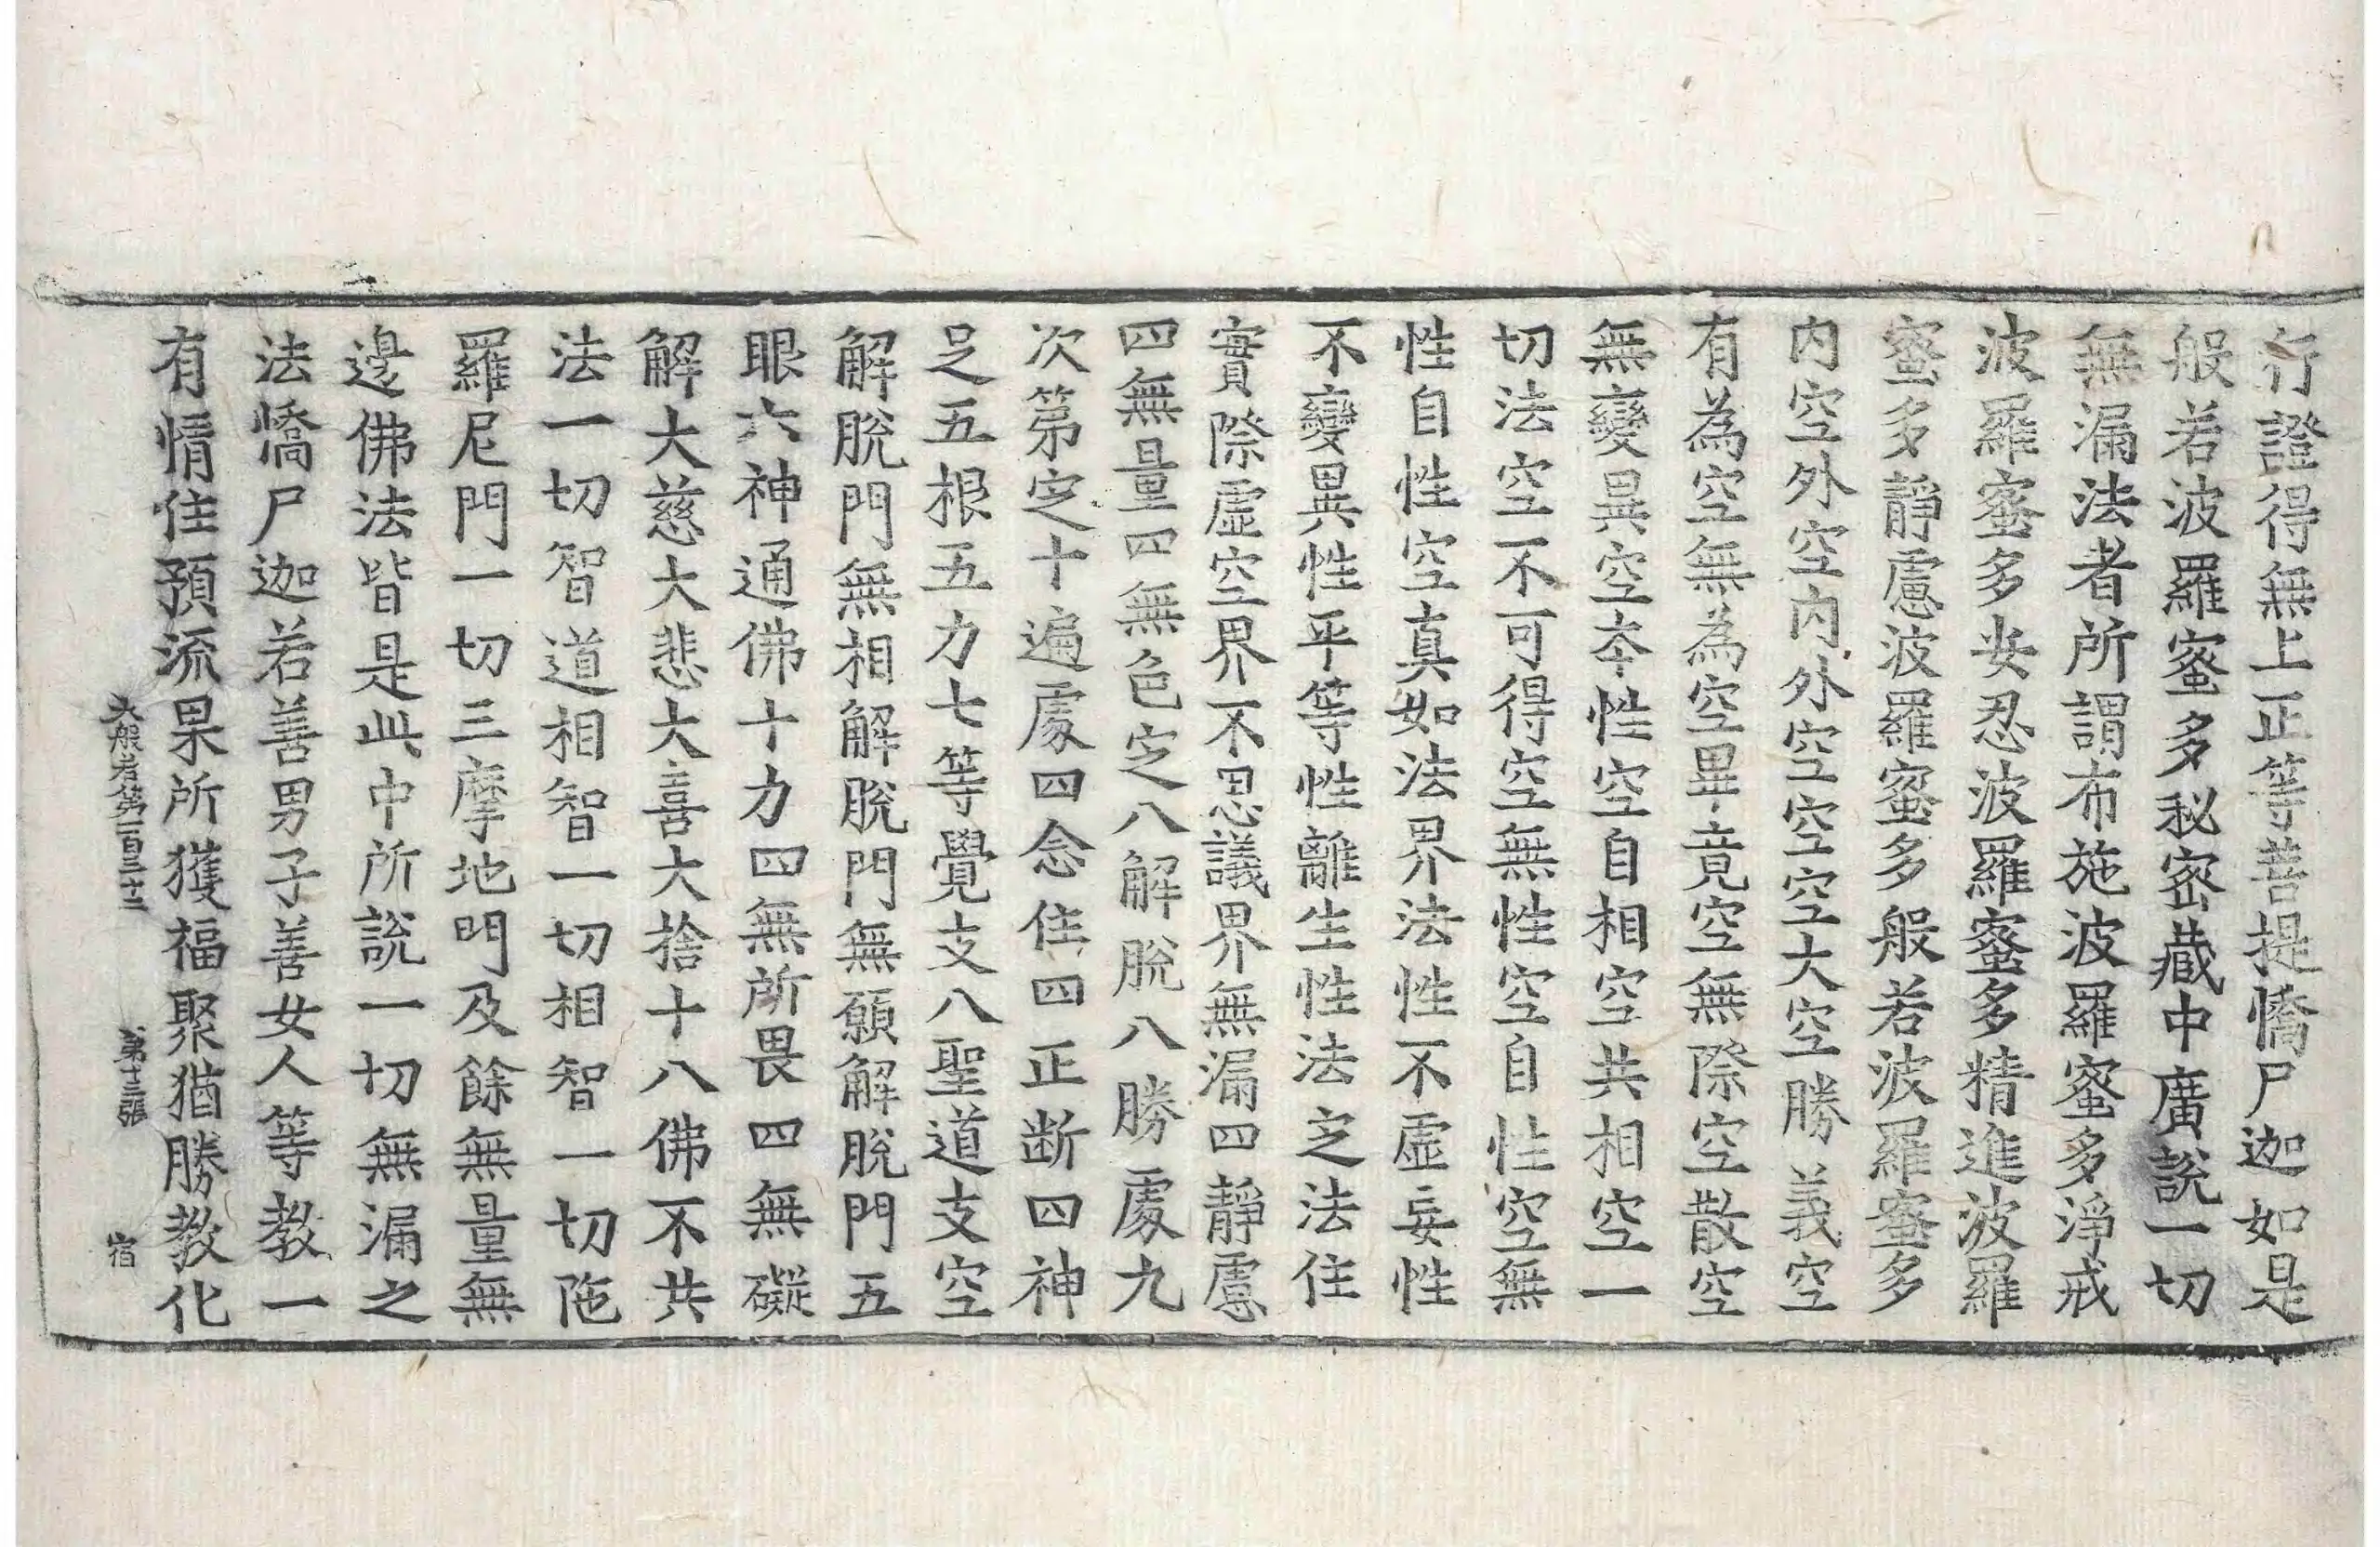 行證得無上正等菩提憍尸迦如是
般若波羅蜜多秘密藏中廣說一切
無漏法者所謂布施波羅蜜多淨戒
波羅蜜多安忍波羅蜜多精進波羅
蜜多靜慮波羅蜜多般若波羅蜜多
內空外空內外空空空大空勝義空
有為空無為空畢竟空無際空散空
無變異空本性空自相空共相空一
切法空不可得空無性空自性空無
性自性空真如法界法性不虛妄性
不變異性平等性離生性法定法住
實際虛空界不思議界無漏四靜慮
四無量四無色定八解脫八勝處九
次第定十遍處四念住四正斷四神
足五根五力七等覺支八聖道支空
解脫門無相解脫門無願解脫門五
眼六神通佛十力四無所畏四無礙
解大慈大悲大喜大捨十八佛不共
法一切智道相智一切相智一切陁
羅尼門一切三摩地門及餘無量無
邊佛法皆是此中所說一切無漏之
法憍尸迦若善男子善女人等教一
有情住預流果所獲福聚猶勝教化
大般若第一百三十二 第十三張 宿